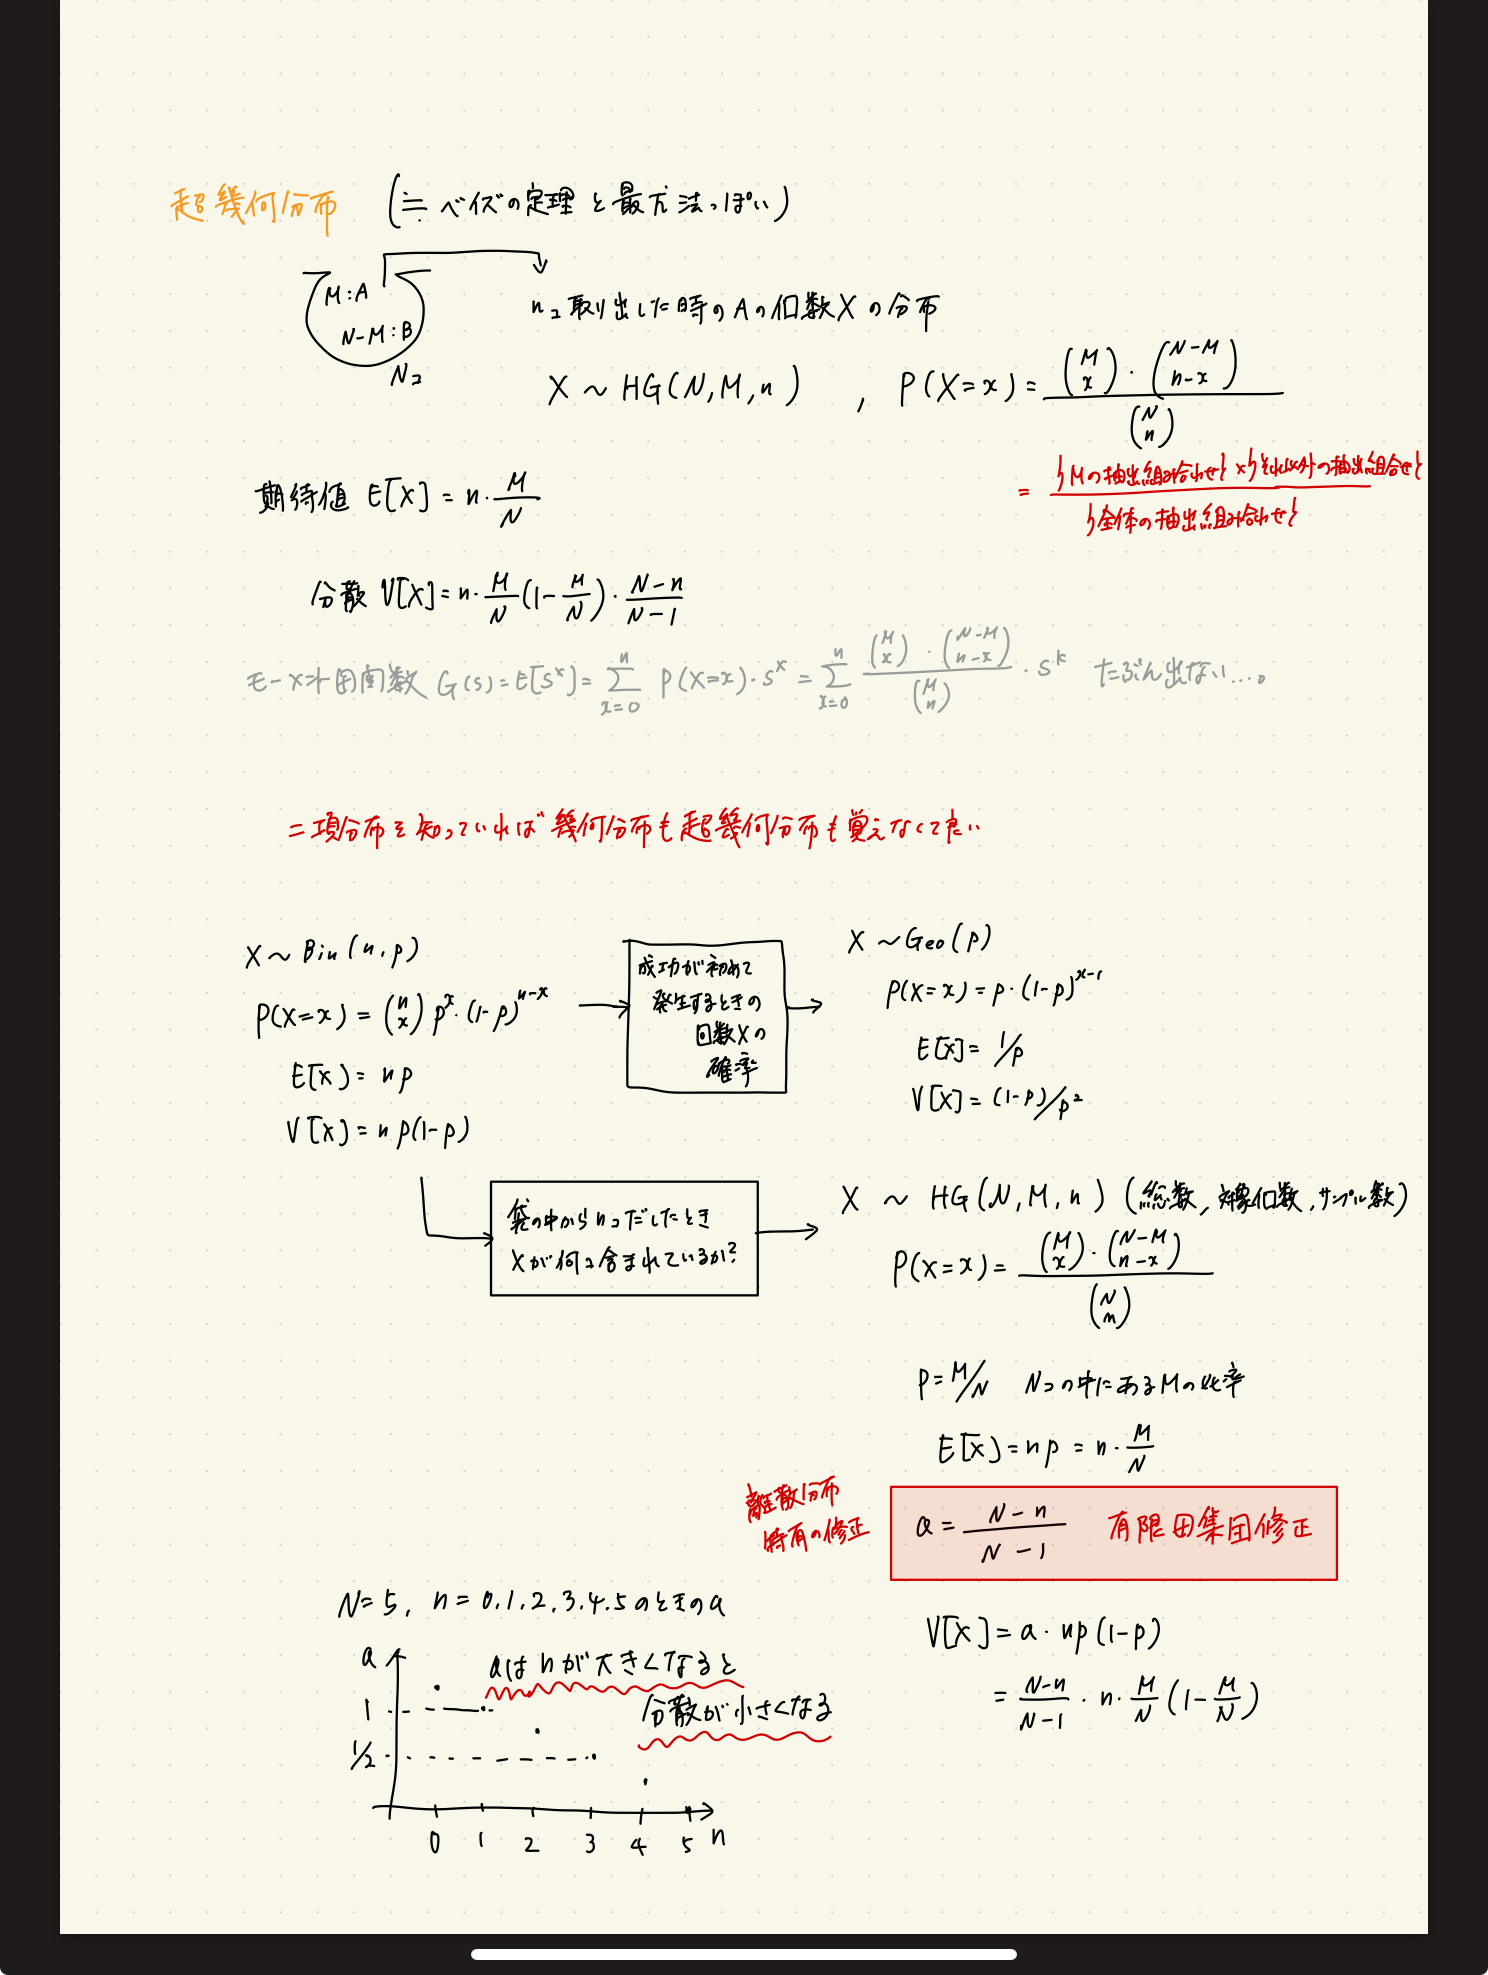 超幾何分布 (≒ ベイズの定理と最尤法っぽい)
M:A
N-M:B
Nコ
nコ取り出した時のAの個数Xの分布
X ~ HG(N, M, n) , P(X=x) = (M x)・(N-M n-x) / (N n)
= {Mの抽出組み合わせ}×{それ以外の抽出組合せ} / {全体の抽出組み合わせ}
期待値 E[X] = n・M/N
分散 V[X] = n・M/N(1-M/N)・N-n/N-1
モーメント母関数 G(s)=E[s^x]=Σ_{x=0}^{n} P(X=x)・s^x = Σ_{x=0}^{n} (M x)・(N-M n-x) / (M n)・s^k たぶん出ない...。
二項分布を知っていれば幾何分布も超幾何分布も覚えなくて良い
X ~ Bin(n, p)
P(X=x) = (n x) p^x・(1-p)^{n-x}
E[X] = np
V[X] = np(1-p)
成功が初めて
発生するときの
回数Xの
確率
X ~ Geo(p)
P(X=x) = p・(1-p)^{x-1}
E[X] = 1/p
V[X] = (1-p)/p^2
袋の中からnコだしたとき
Xが何コ含まれているか?
X ~ HG(N, M, n) (総数, 対象個数, サンプル数)
P(X=x) = (M x)・(N-M n-x) / (N n)
P=M/N Nコの中にあるMの比率
E[X] = np = n・M/N
離散分布
特有の修正
a = N-n/N-1 有限母集団修正
V[X] = a・np(1-p)
= N-n/N-1・n・M/N(1-M/N)
N=5, n=0.1.2.3.4.5のときのa
a
1
1/2
aはnが大きくなると
分散が小さくなる
0 1 2 3 4 5 n